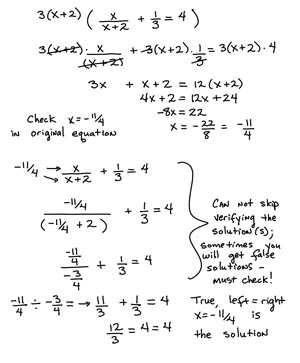 3(x+2) ( x/(x+2) + 1/3 = 4 )
3(x+2) · x/(x+2) + 3(x+2) · 1/3 = 3(x+2) · 4
3x + x+2 = 12(x+2)
4x+2 = 12x+24
-8x = 22
x = -22/8 = -11/4
Check x = -11/4
in original equation
-11/4 → x/(x+2) + 1/3 = 4
(-11/4)/(-11/4 + 2) + 1/3 = 4
(-11/4)/(-3/4) + 1/3 = 4
-11/4 ÷ -3/4 = → 11/3 + 1/3 = 4
12/3 = 4 = 4
Can not skip
verifying the
solution(s);
sometimes you
will get false
solutions -
must check!
True, left = right
x = -11/4 is
the solution